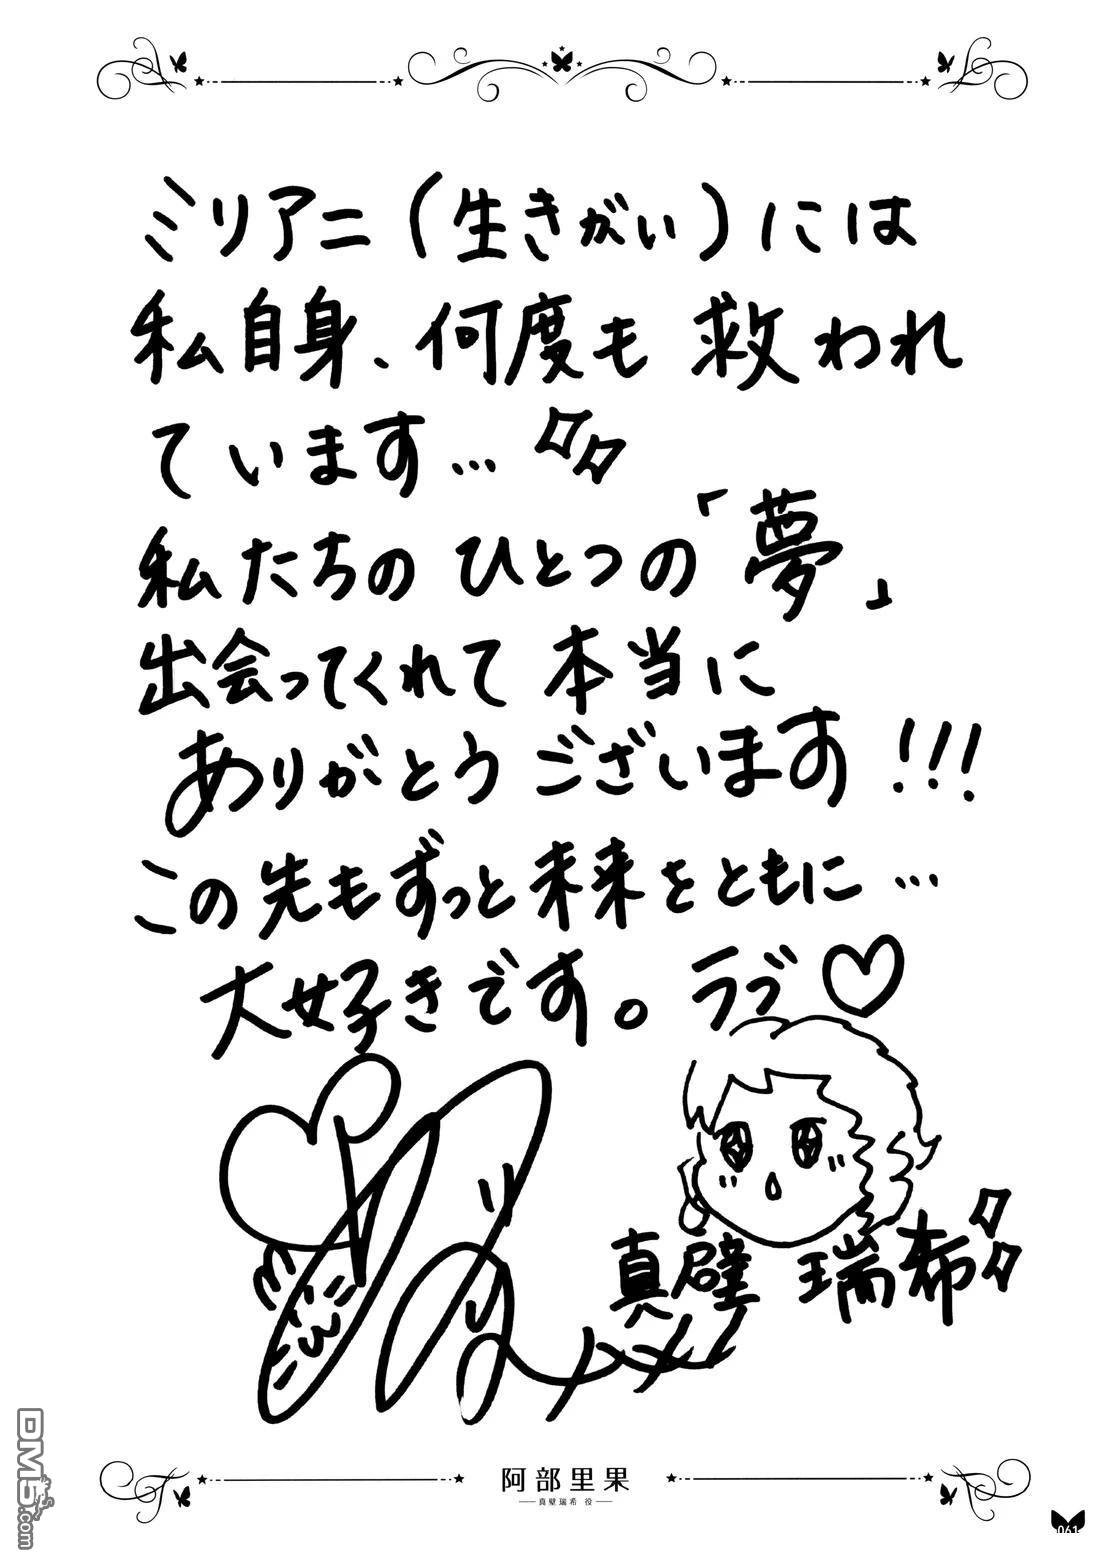 ミリアニ(生きがい)には
私自身、何度も救われ
ています…
私たちのひとつの「夢」
出会ってくれて本当に
ありがとうございます!!!
この先もずっと未来をともに…
大好きです。ラブ♡
真壁瑞希
阿部里果
真壁瑞希 役
061
DM5.com